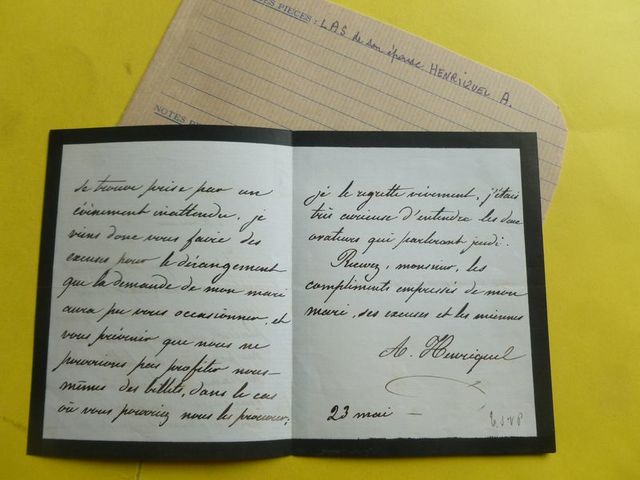 ES PIÈCES : LAS de son épouse HENRIQUEL A.
NOTES
se trouve prise par un
évènement inattendu, je
viens donc vous faire des
excuses pour le dérangement
que la demande de mon mari
aura pu vous occasionner, et
vous prévenir que nous ne
pourrions pas profiter nous-
mêmes des billets, dans le cas
où vous pourriez nous les procurer,
je le regrette vivement, j'étais
très curieuse d'entendre les deux
orateurs qui parleront jeudi.
Recevez, monsieur, les
compliments empressés de mon
mari, ses excuses et les miennes
A. Henriquel
23 mai —